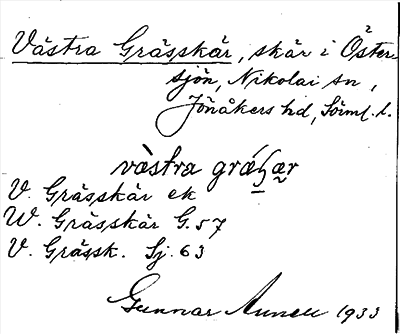 Västra Grässkär, skär i Öster-
sjön, Nikolai sn,
Jönåkers hd, Sörml. l.
västra
V. Grässkär ek
W. Grässkär G. 57
V. Grässk. Sj. 63
Gunnar 1933